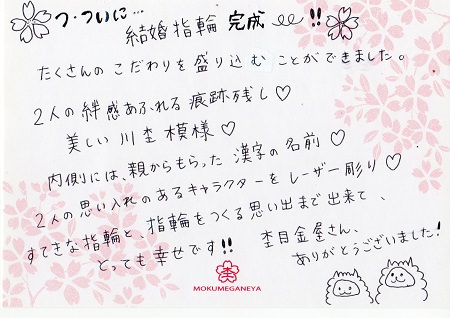 つ・ついに…
結婚指輪 完成 !!
たくさんの こだわりを 盛り込む ことができました。
2人の 絆感あふれる 痕跡残し♡
美しい 川杢模様♡
内側には、親からもらった 漢字の名前♡
2人の思い入れのあるキャラクターを レーザー彫り♡
すてきな指輪と、指輪をつくる思い出まで出来て、
とっても 幸せです!!
杢目金屋さん、
ありがとうございました!
杢
MOKUMEGANEYA